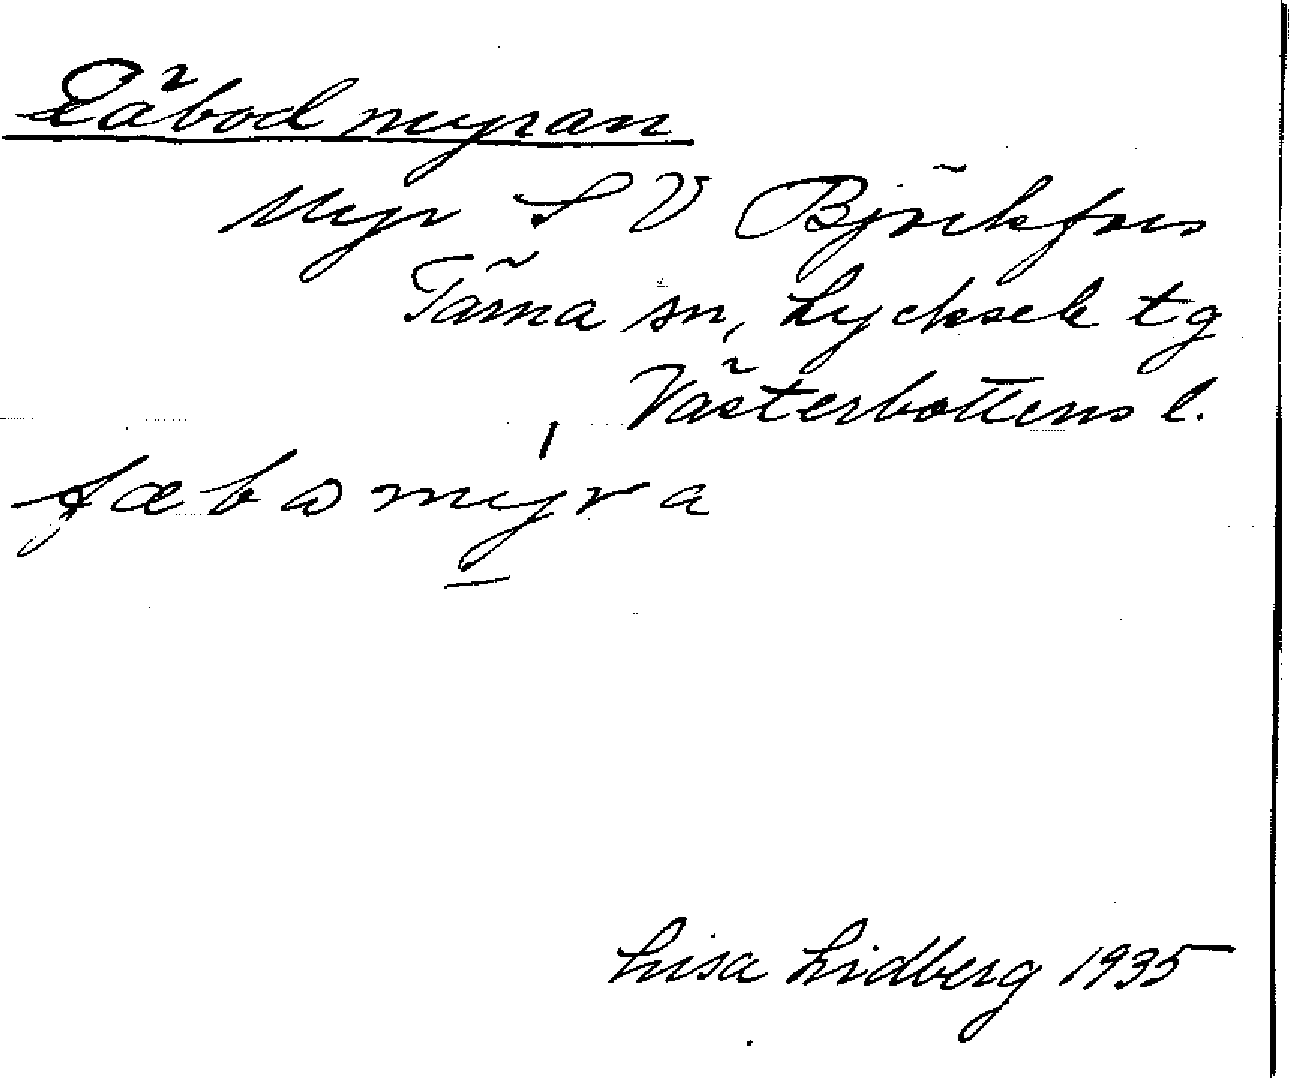 Fäbodmyran
Myr S V Björkfors
Tärna sn, Lycksele tg
Västerbottens l.
fæbomy̲ra
Lisa Lidberg 1935